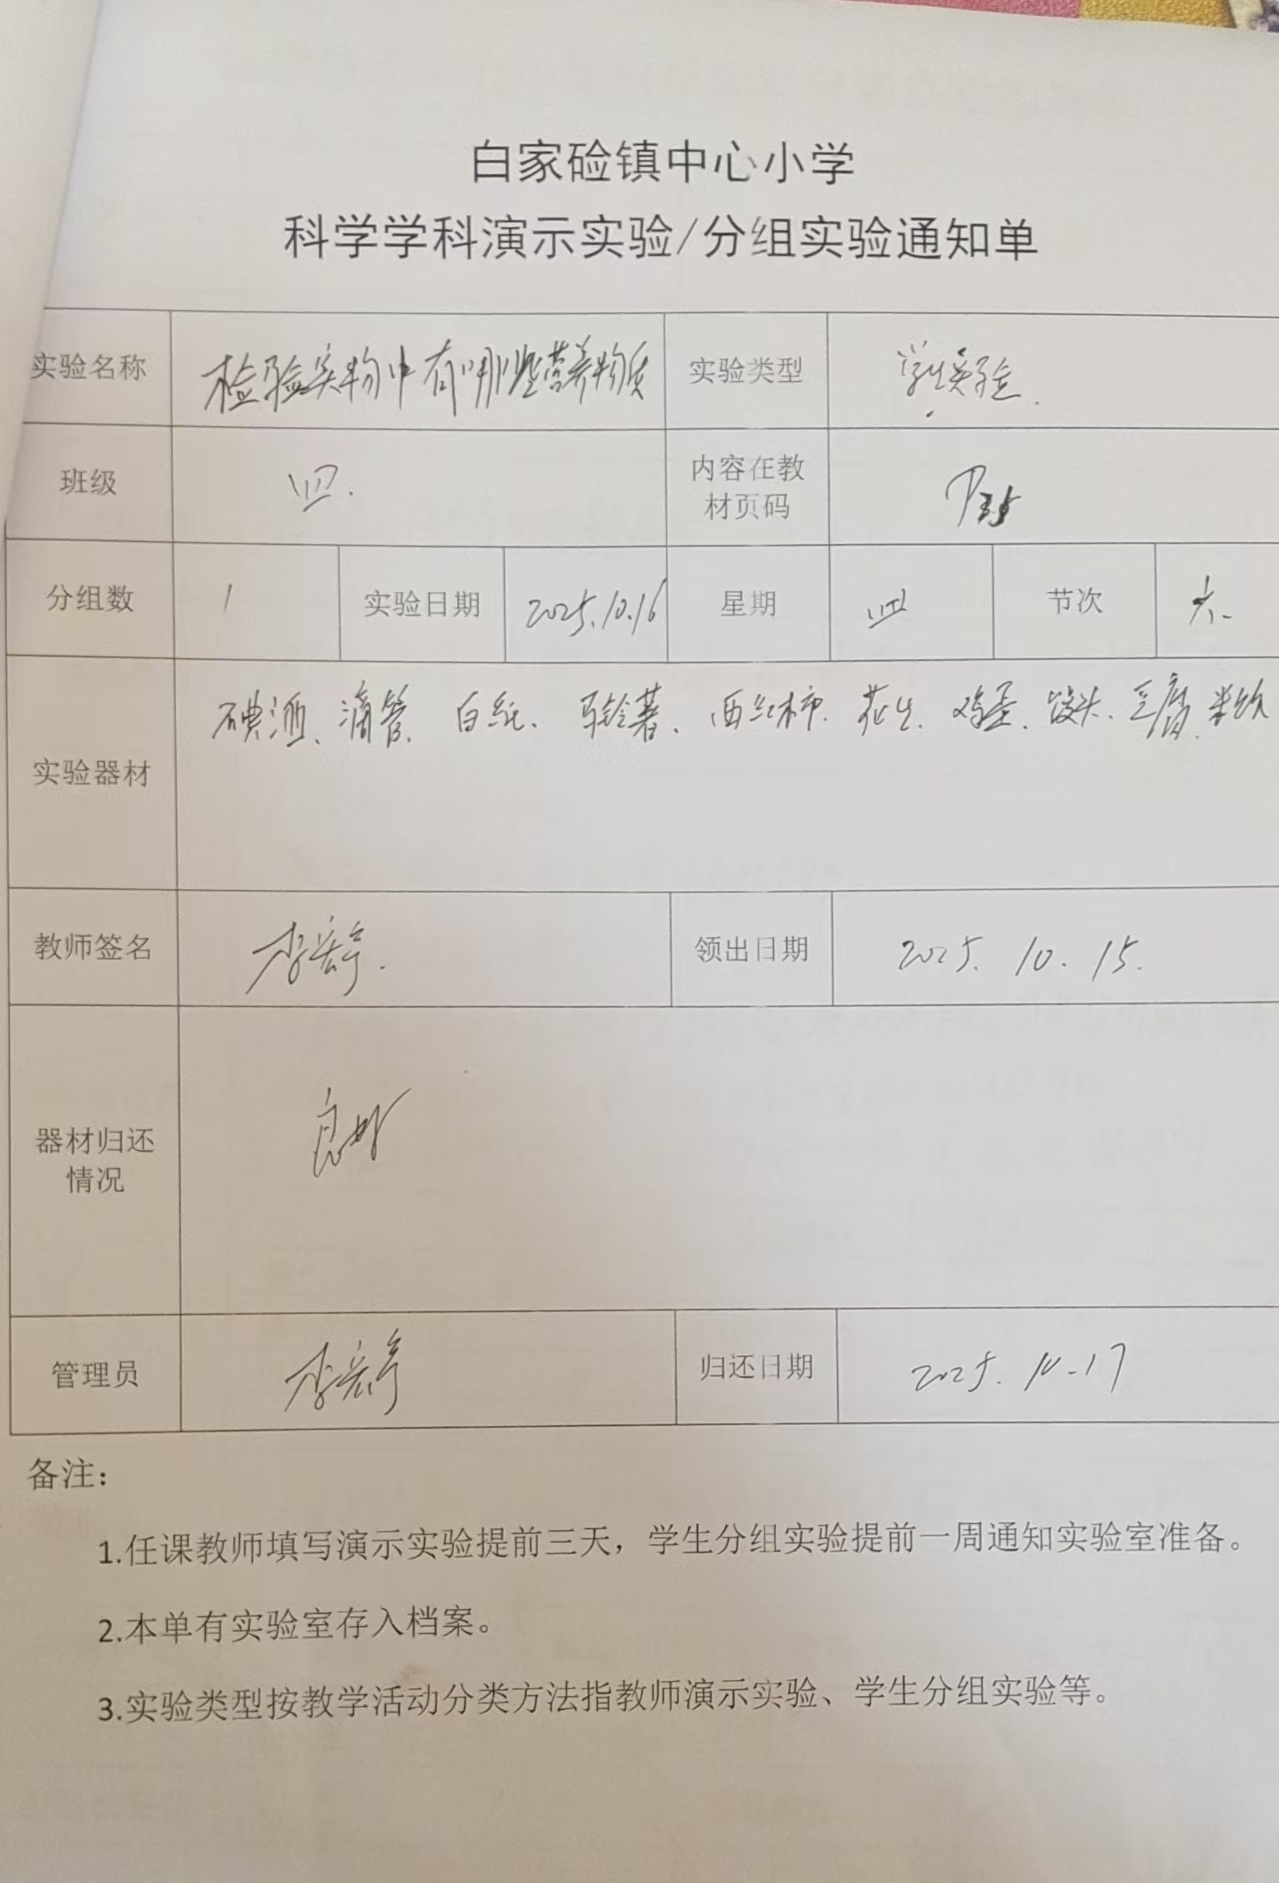 白家硷镇中心小学
科学学科演示实验/分组实验通知单
实验名称 检验实物中有哪些营养物质 实验类型 学生实验.
班级 四. 内容在教材页码 P35
分组数 1 实验日期 2025.10.16 星期 四 节次 六.
实验器材 碘酒、滴管、白纸、马铃薯、西红柿、花生、鸡蛋、馒头、豆腐、米饭
教师签名 领出日期 2025. 10. 15.
器材归还情况 良好
管理员 归还日期 2025. 10.17
备注:
1.任课教师填写演示实验提前三天，学生分组实验提前一周通知实验室准备。
2.本单有实验室存入档案。
3.实验类型按教学活动分类方法指教师演示实验、学生分组实验等。